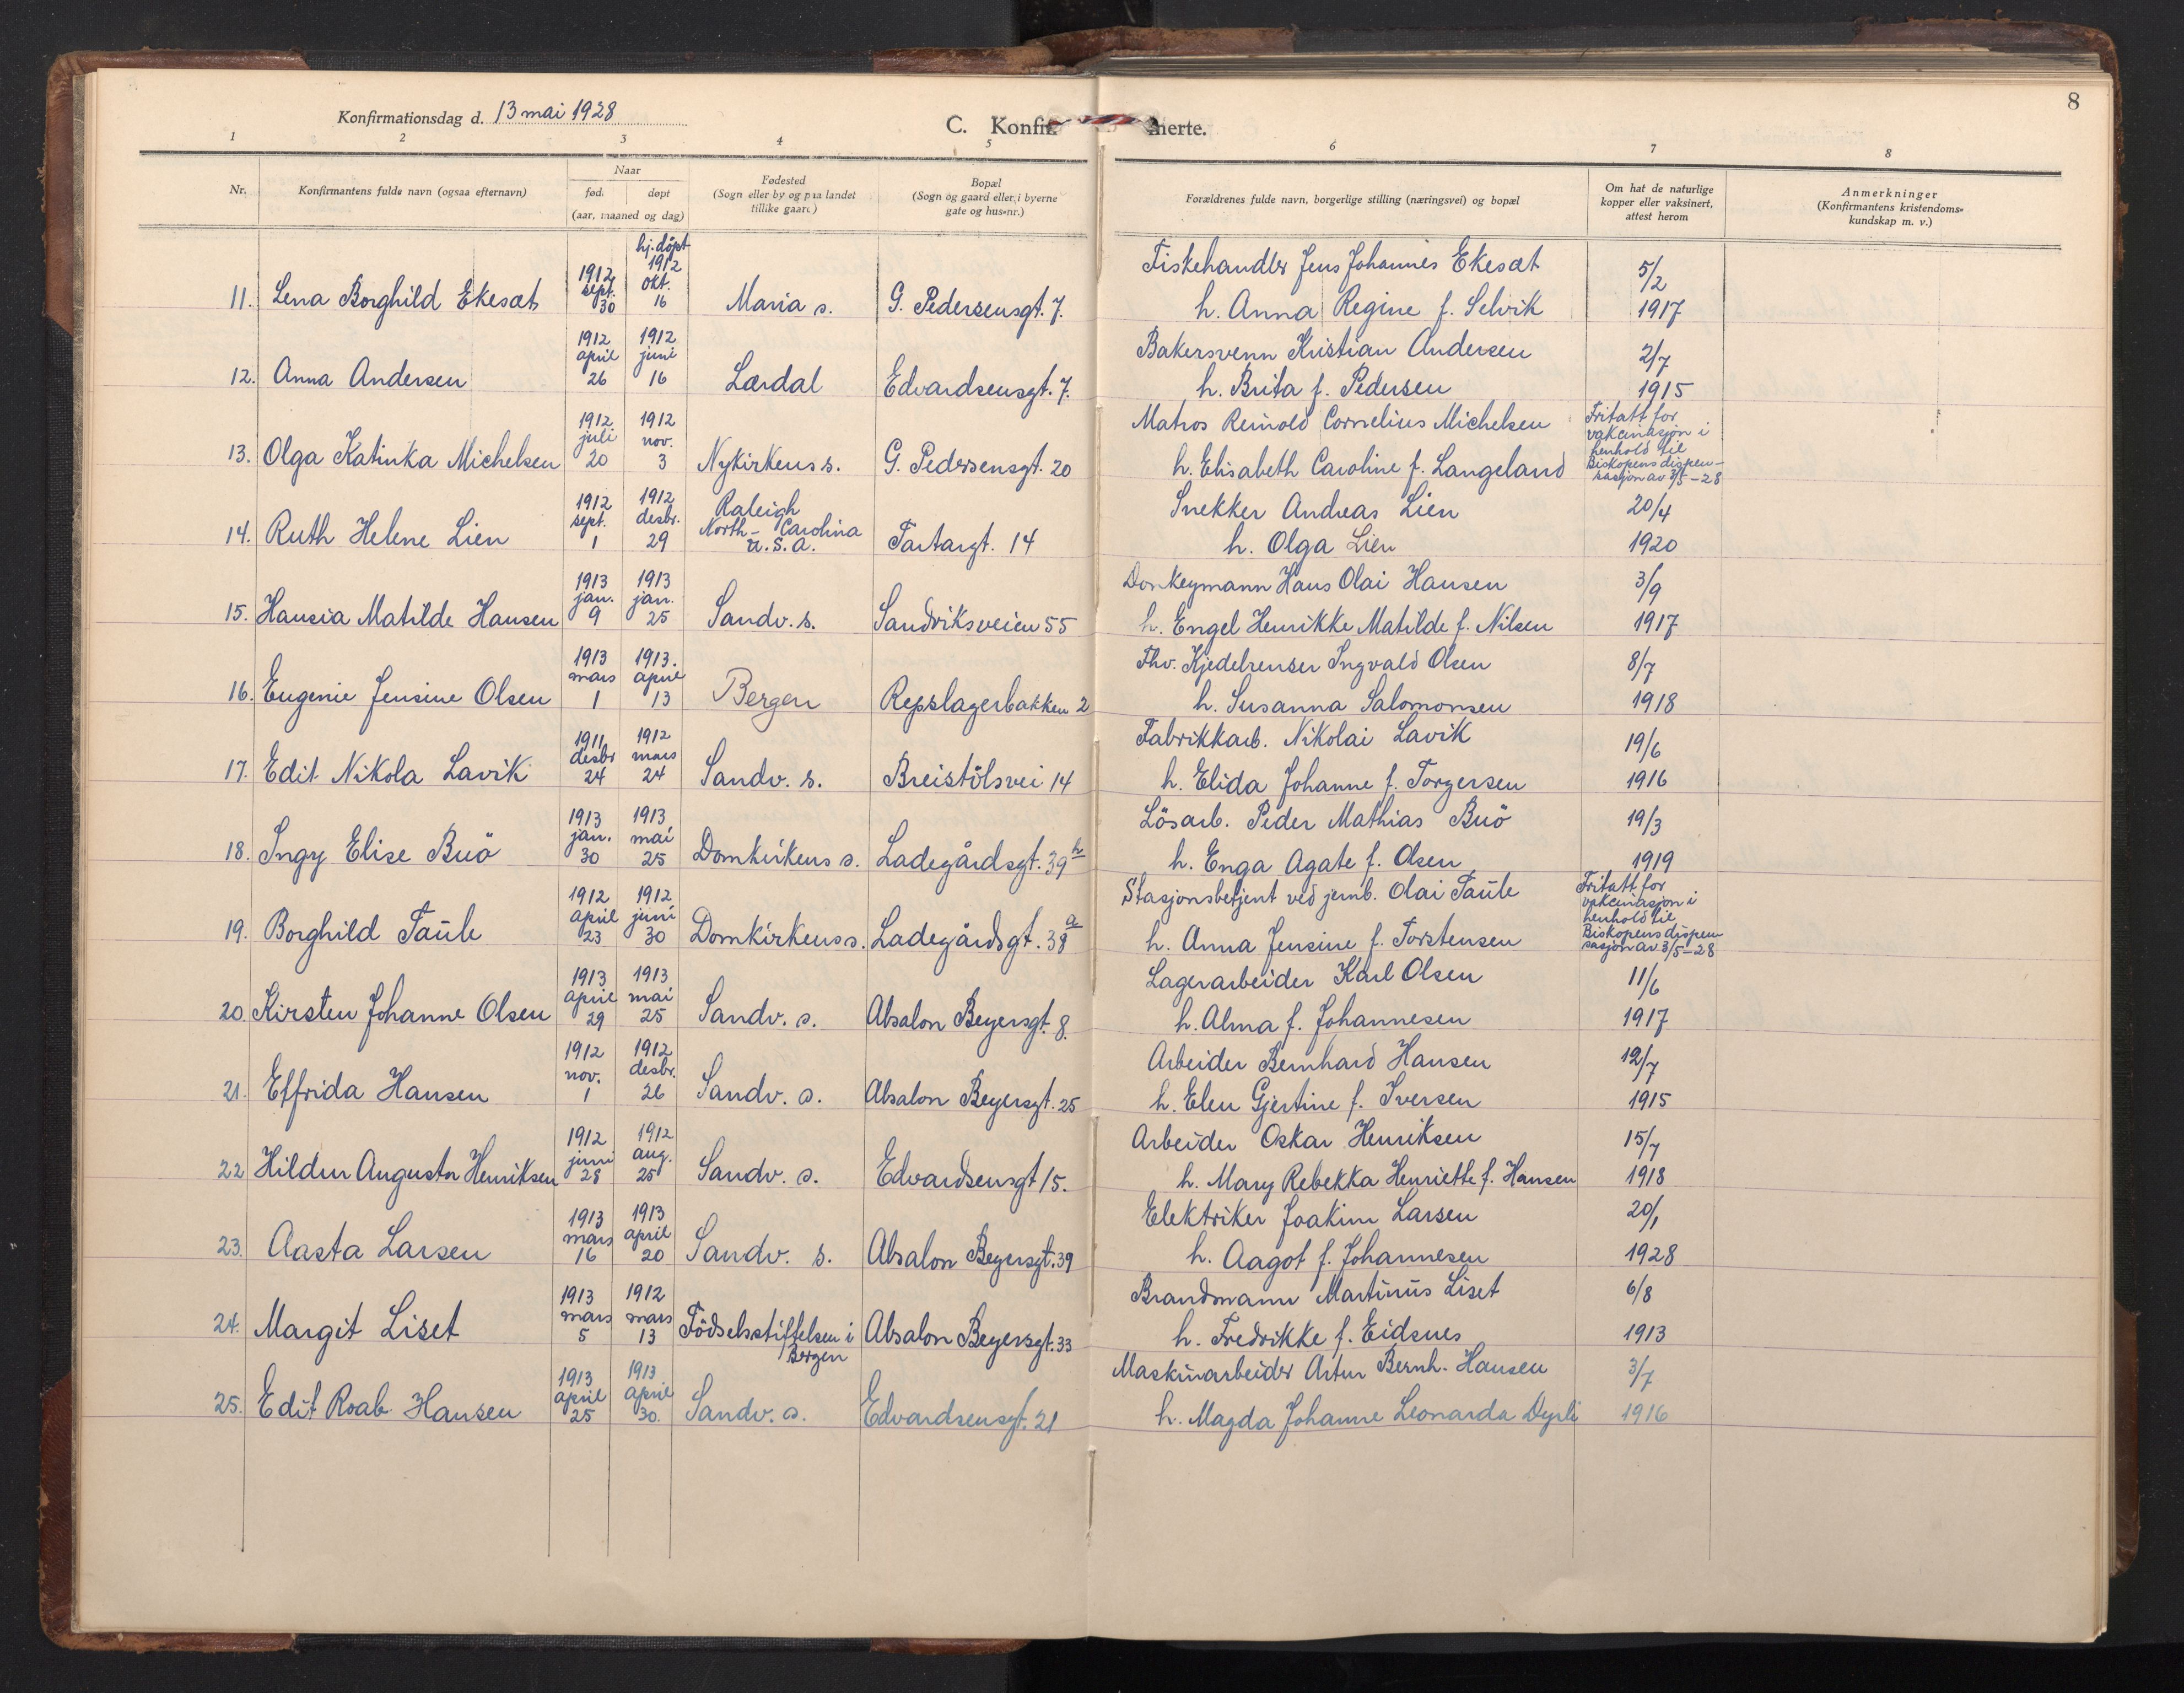 8
Konfirmationsdag d. 13 mai 1928
C. Konfir merte.
1 2 3 4 5 6 7 8
Nr. Konfirmantens fulde navn (ogsaa efternavn) Naar født døpt (aar, maaned og dag) Fødested (Sogn eller by og paa landet tillike gaard) Bopæl (Sogn og gaard eller i byerne gate og hus=nr.) Forældrenes fulde navn, borgerlige stilling (næringsvei) og bopæl Om hat de naturlige kopper eller vaksinert, attest herom Anmerkninger (Konfirmantens kristendoms= kundskap m. v.)
11. Lena Borghild Ekesæt 1912 sept. 30 hj. døpt 1912 okt. 16 Maria s. G. Pedersensgt. 7. Fiskehandler Jens Johannes Ekesæt 5/2
h. Anna Regine f. Selvik 1917
12. Anna Andersen 1912 april 26 1912 juni 16 Lærdal Edvardsensgt. 7. Bakersvenn Kristian Andersen 2/7
h. Brita f. Pedersen 1915
13. Olga Katinka Michelsen 1912 juli 20 1912 nov. 3 Nykirkens s. G. Pedersensgt. 20 Matros Reinold Cornelius Michelsen
h. Elisabeth Caroline f. Langeland Fritatt for vakcinasjon i henhold til Biskopens dispen- sasjon av 3/5-28
14. Ruth Helene Lien 1912 sept. 1 1912 desbr. 29 Raleigh North-Carolina U.S.A. Tartargt. 14 Snekker Andreas Lien 20/4
h. Olga Lien 1920
15. Hansia Matilde Hansen 1913 jan. 9 1913 jan. 25 Sandv. s. Sandviksveien 55 Donkeymann Hans Olai Hansen 3/9
h. Engel Henrikke Matilde f. Nilsen 1917
16. Eugenie Jensine Olsen 1913 mars 1 1913. april 13 Bergen Repslagerbakken 2 Fhv. Kjedelrenser Ingvald Olsen 8/7
h. Susanna Salomonsen 1918
17. Edit Nikola Lavik 1911 desbr 24 1912 mars 24 Sandv. s. Breistölsvei 14 Fabrikkarb. Nikolai Lavik 19/6
h. Elida Johanne f. Torgersen 1916
18. Ingy Elise Buö 1913 jan. 30 1913 mai 25 Domkirkens s. Ladegårdsgt. 39 h Lösarb. Peder Mathias Buö 19/3
h. Enga Agate f. Olsen 1919
19. Borghild Taule 1912 april 23 1912 juni 30 Domkirkens s. Ladegårdsgt. 38 a Stasjonsbetjent ved jernb. Olai Taule
h. Anna Jensine f. Torstensen Fritatt for vakcinasjon i henhold til Biskopens dispen sasjon av 3/5-28
20. Kirsten Johanne Olsen 1913 april 29 1913 mai 25 Sandv. s. Absalon Beyersgt. 8. Lagerarbeider Karl Olsen 11/6
h. Alma f. Johannesen 1917
21. Elfrida Hansen 1912 nov. 1 1912 desbr. 26 Sandv. s. Absalon Beyersgt. 25 Arbeider Bernhard Hansen 12/7
h. Elen Gjertine f. Iversen 1915
22 Hildur Augusta Henriksen 1912 juni 28 1912 aug. 25 Sandv. s. Edvardsensgt 15. Arbeider Oskar Henriksen 15/7
h. Mary Rebekka Henriette f. Hansen 1918
23. Aasta Larsen 1913 mars 16 1913 april 20 Sandv. s. Absalon Beyersgt. 39 Elektriker Joakim Larsen 20/1
h. Aagot f. Johannesen 1928
24. Margit Liset 1913 mars 5 1912 mars 13 Födselsstiftelsen i Bergen Absalon Beyersgt. 33 Brandmann Martinus Liset 6/8
h. Fredrikke f. Eidsnes 1913
25. Edit Roab Hansen 1913 april 25 1913 april 30. Sandv. s. Edvardsensgt. 21 Maskinarbeider Artur Bernh. Hansen 3/7
h. Magda Johanne Leonarda Dyrli 1916